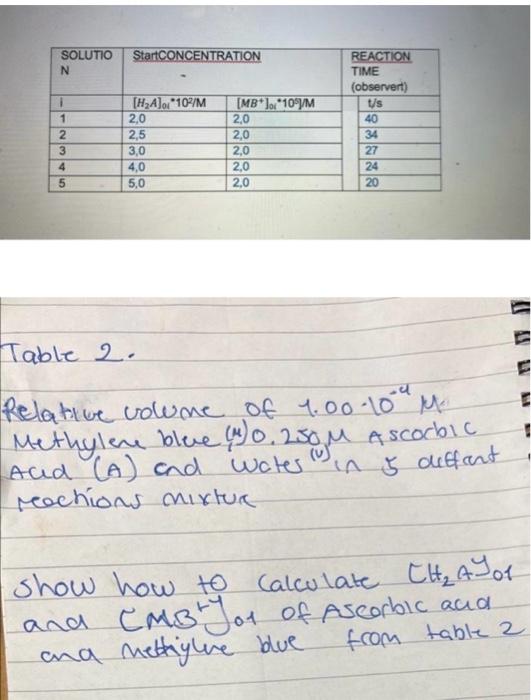 SOLUTIO StartCONCENTRATION REACTION
N - TIME
(observert)
i [H₂A]₀ᵢ*10²/M [MB⁺]₀ᵢ*10⁵)/M t/s
1 2,0 2,0 40
2 2,5 2,0 34
3 3,0 2,0 27
4 4,0 2,0 24
5 5,0 2,0 20
Table 2.
Relative volume of 1.00·10⁻⁴ M
Methylene blue (M) 0.250 M Ascorbic
Acid (A) and Wates (V) in 5 deffant
reachions mixtur
show how to Calculate [H₂A]₀₁
and [MB⁺]₀₁ of Ascorbic acid
and methylne blue from table 2